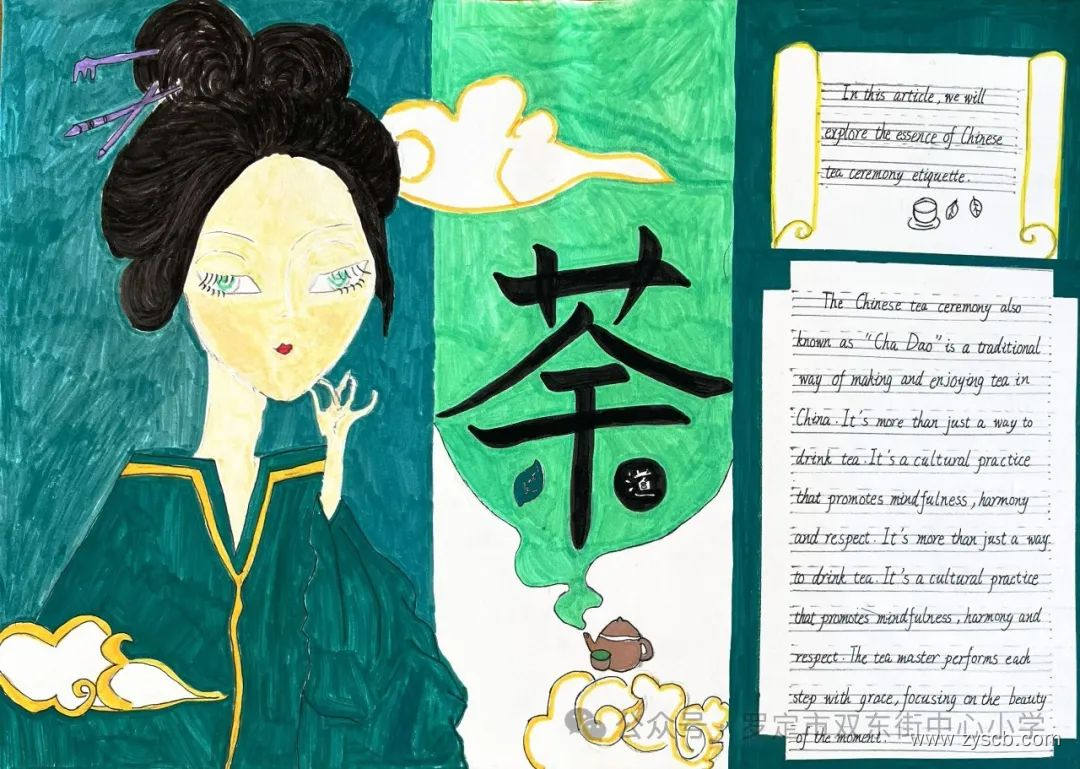 In this article, we will
explore the essence of Chinese
tea ceremony etiquette.
茶
道
The Chinese tea ceremony also
known as "Cha Dao" is a traditional
way of making and enjoying tea in
China. It's more than just a way to
drink tea. It's a cultural practice
that promotes mindfulness, harmony
and respect. It's more than just a way
to drink tea. It's a cultural practice
that promotes mindfulness, harmony and
respect. The tea master performs each
step with grace, focusing on the beauty
of the moment.
公众号 · 罗定市双东街中心小学
www.zyscb.com